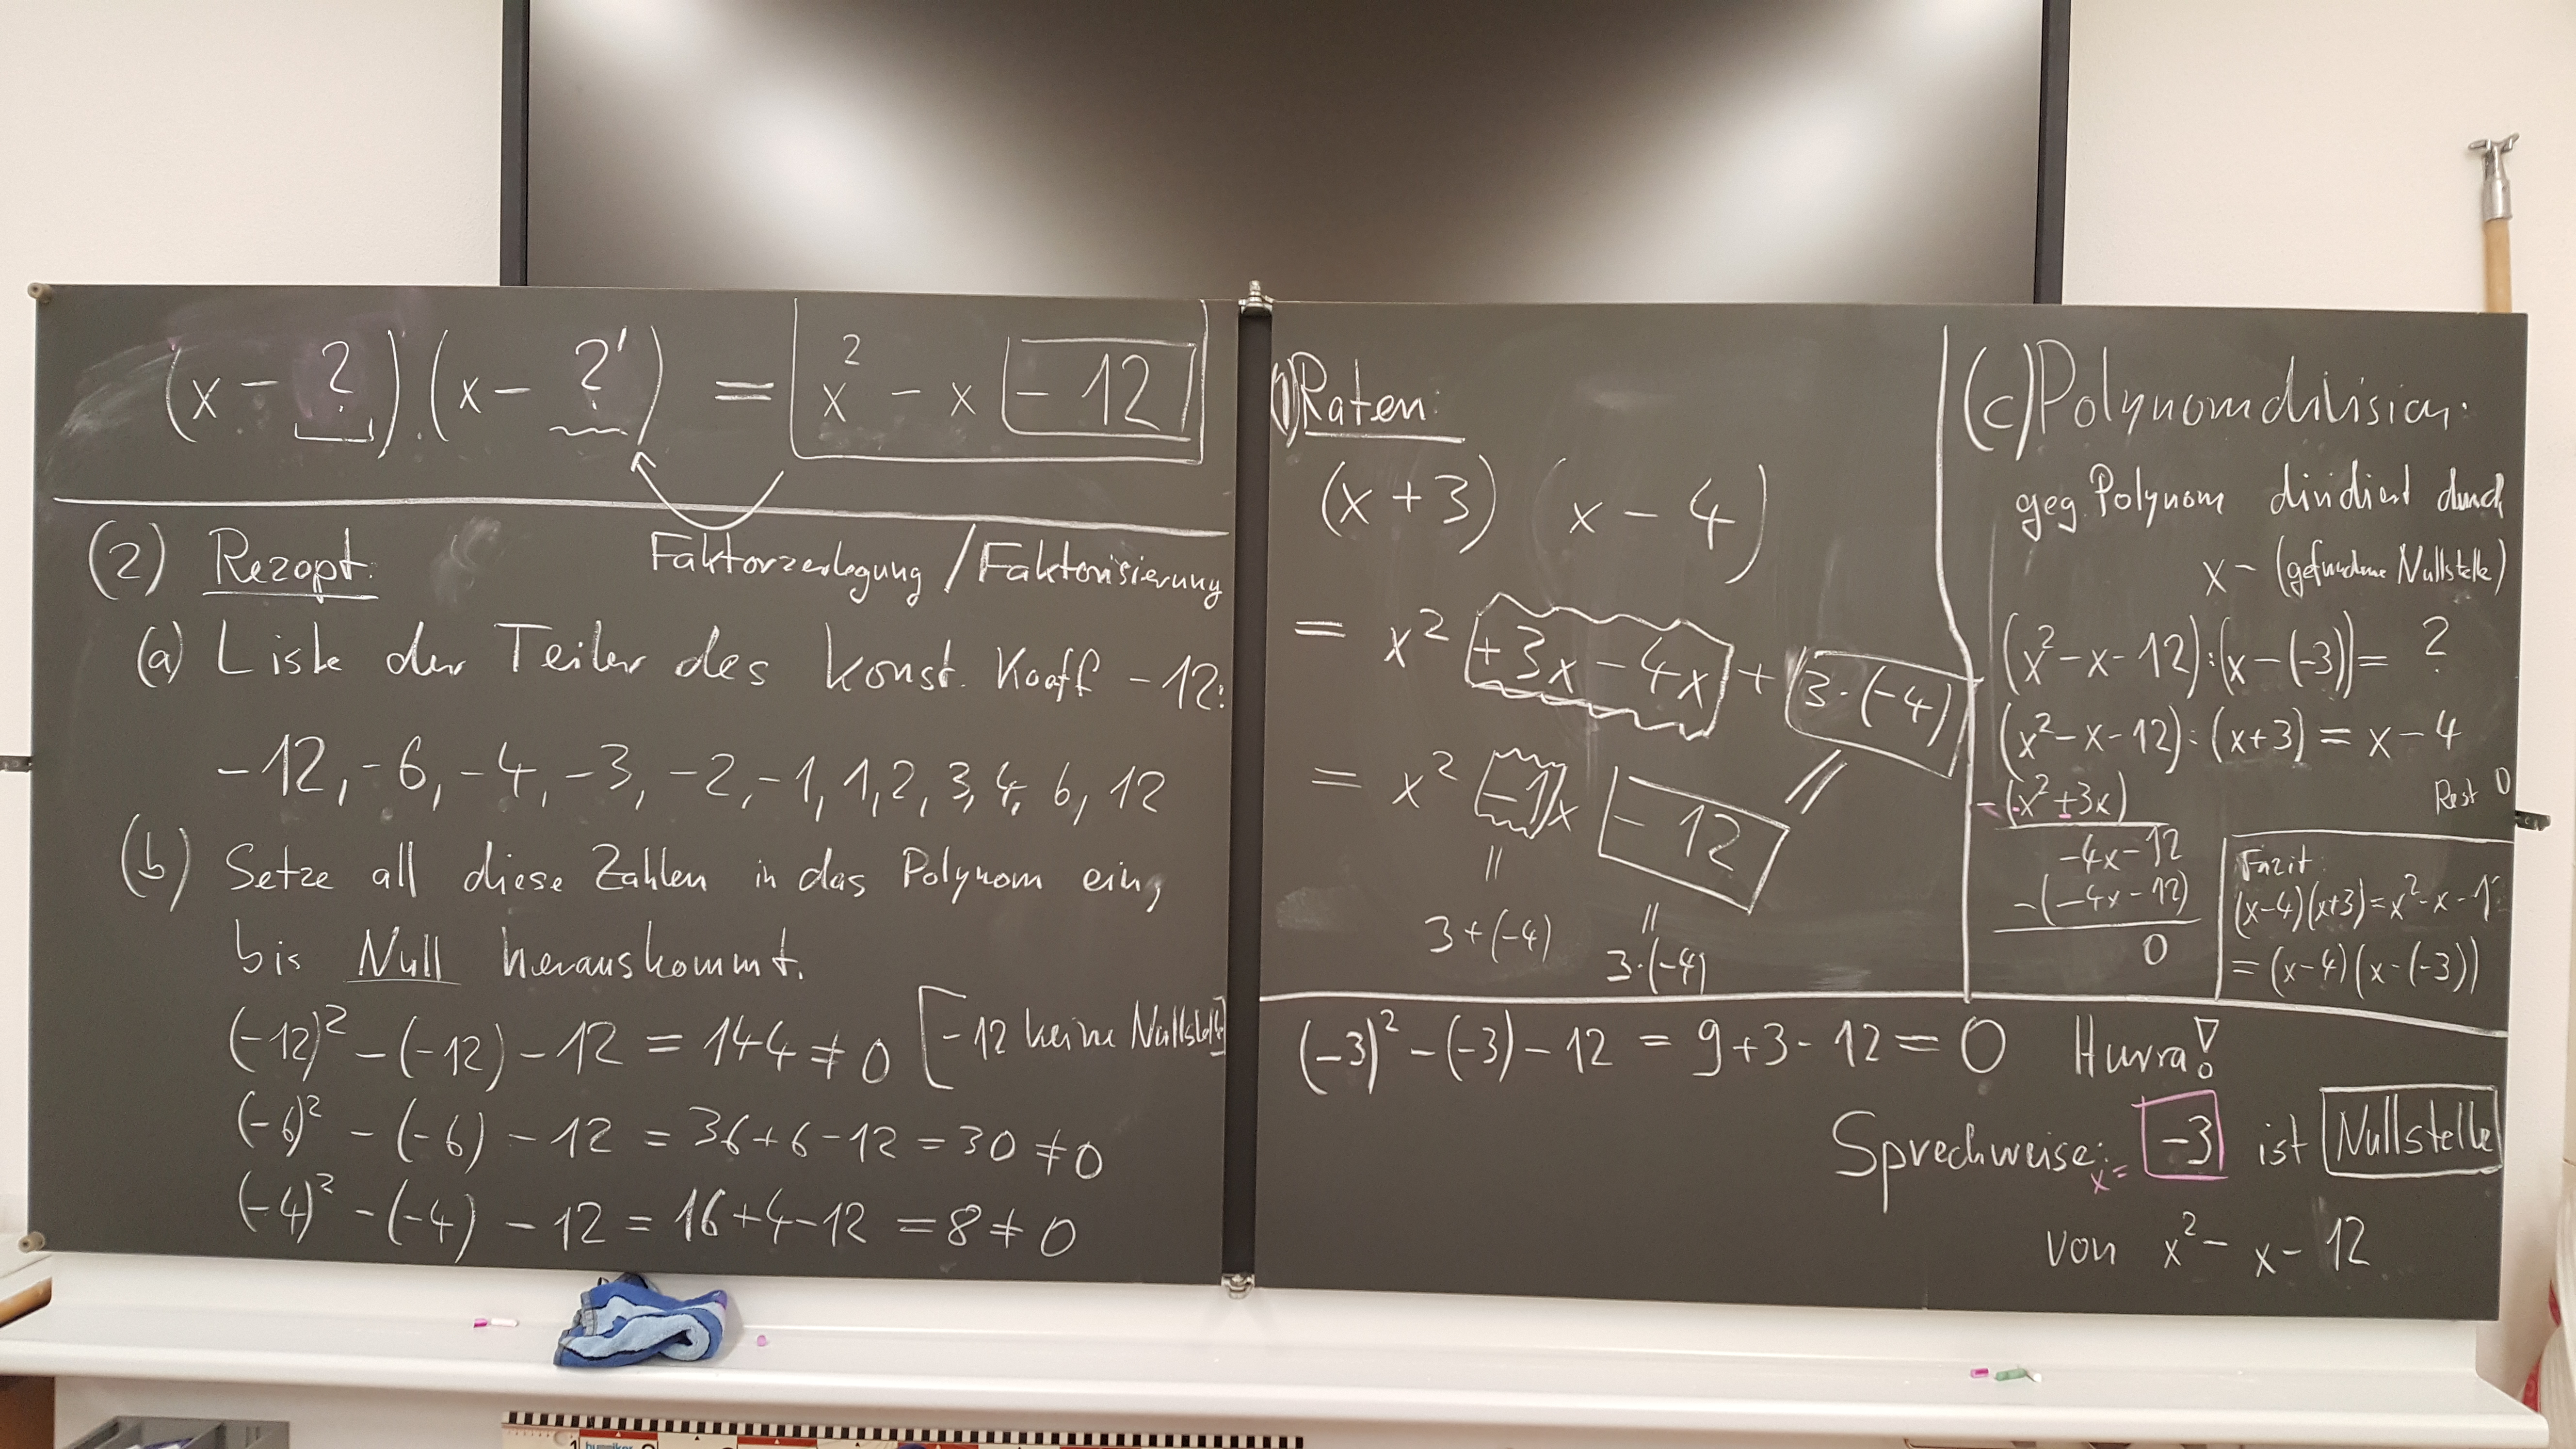 (x - ?) · (x - ?') = x² - x - 12
(2) Rezept:
Faktorzerlegung / Faktorisierung
(a) Liste der Teiler des konst. Koeff -12:
-12, -6, -4, -3, -2, -1, 1, 2, 3, 4, 6, 12
(b) Setze all diese Zahlen in das Polynom ein,
bis Null herauskommt.
(-12)² - (-12) - 12 = 144 ≠ 0 [-12 keine Nullstelle
(-6)² - (-6) - 12 = 36 + 6 - 12 = 30 ≠ 0
(-4)² - (-4) - 12 = 16 + 4 - 12 = 8 ≠ 0
(1) Raten:
(x + 3) (x - 4)
= x² +3x - 4x + 3·(-4)
= x² -1x - 12
=
3 + (-4)
=
3·(-4)
(c) Polynomdivision:
geg. Polynom dividiert durch
x - (gefundene Nullstelle)
(x² - x - 12) : (x - (-3)) = ?
(x² - x - 12) : (x + 3) = x - 4
-(x² + 3x)
Rest 0
-4x - 12
-(-4x - 12)
0
Fazit:
(x-4)(x+3) = x² - x - 1
= (x-4)(x-(-3))
(-3)² - (-3) - 12 = 9 + 3 - 12 = 0 Hurra!
Sprechweise: x = -3 ist Nullstelle
von x² - x - 12
1
hummiker